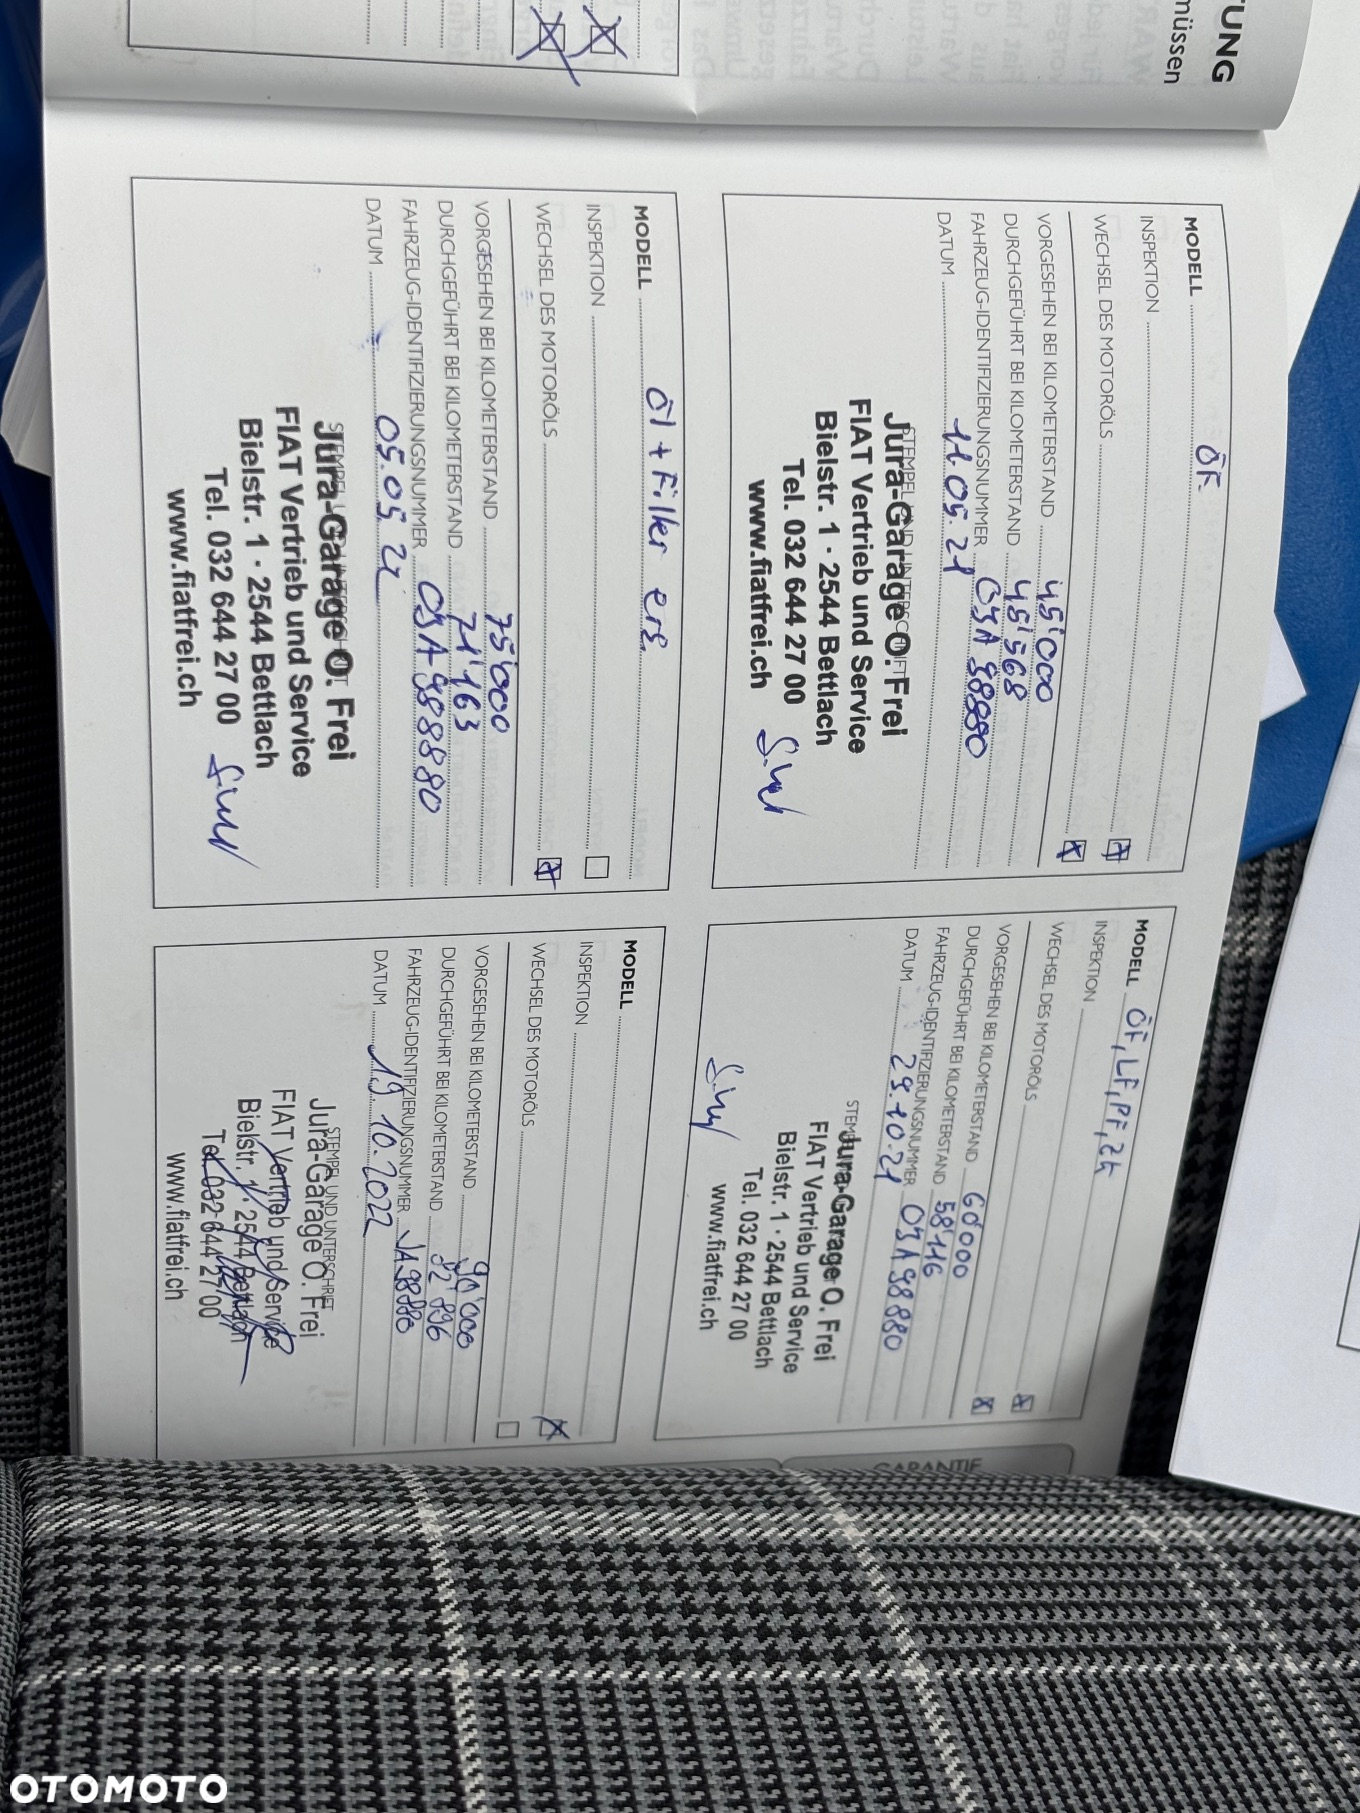 TUNG
müssen
MODELL ÖF.
INSPEKTION
WECHSEL DES MOTORÖLS
VORGESEHEN BEI KILOMETERSTAND 45'000
DURCHGEFÜHRT BEI KILOMETERSTAND 45'568
FAHRZEUG-IDENTIFIZIERUNGSNUMMER
DATUM 11.05.21
STEMPEL UND UNTERSCHRIFT
Jura-Garage O. Frei
FIAT Vertrieb und Service
Bielstr. 1 · 2544 Bettlach
Tel. 032 644 27 00
www.fiatfrei.ch
MODELL ÖF, LF, PF,
INSPEKTION
WECHSEL DES MOTORÖLS
VORGESEHEN BEI KILOMETERSTAND 60'000
DURCHGEFÜHRT BEI KILOMETERSTAND 58'116
FAHRZEUG-IDENTIFIZIERUNGSNUMMER 0JA98880
DATUM 29.10.21
Jura-Garage O. Frei
FIAT Vertrieb und Service
Bielstr. 1 · 2544 Bettlach
Tel. 032 644 27 00
www.fiatfrei.ch
MODELL Öl + Filter ers.
INSPEKTION
WECHSEL DES MOTORÖLS
VORGESEHEN BEI KILOMETERSTAND 75'000
DURCHGEFÜHRT BEI KILOMETERSTAND 71'163
FAHRZEUG-IDENTIFIZIERUNGSNUMMER
DATUM 05.05.22
Jura-Garage O. Frei
FIAT Vertrieb und Service
Bielstr. 1 · 2544 Bettlach
Tel. 032 644 27 00
www.fiatfrei.ch
MODELL
INSPEKTION
WECHSEL DES MOTORÖLS
VORGESEHEN BEI KILOMETERSTAND 90'000
DURCHGEFÜHRT BEI KILOMETERSTAND 82'896
FAHRZEUG-IDENTIFIZIERUNGSNUMMER JA98880
DATUM 19.10.2022
STEMPEL UND UNTERSCHRIFT
Jura-Garage O. Frei
FIAT Vertrieb und Service
Bielstr. 1 · 2544 Bettlach
Tel. 032 644 27 00
www.fiatfrei.ch
GARANTIE
OTOMOTO